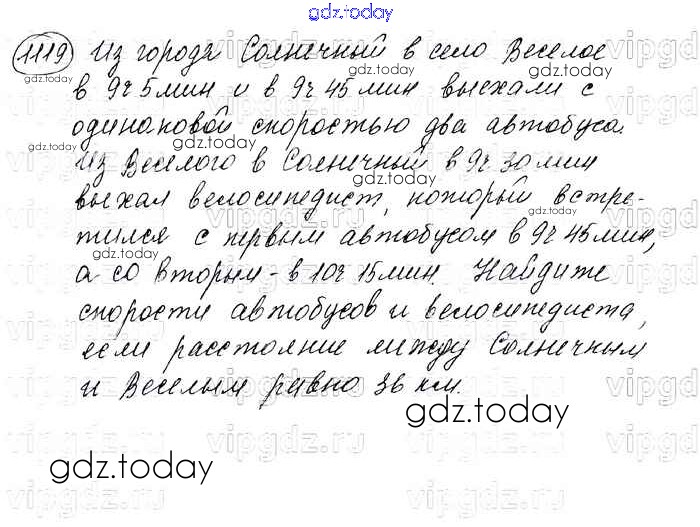 gdz.today
1119 Из города Солнечный в село Веселое
в 9ч 5мин и в 9ч 45мин выехали с
одинаковой скоростью два автобуса.
Из Веселого в Солнечный в 9ч 30мин
выехал велосипедист, который встре-
тился с первым автобусом в 9ч 45мин,
а со вторым - в 10ч 15мин. Найдите
скорости автобусов и велосипедиста,
если расстояние между Солнечным
и Веселым равно 36 км.
gdz.today
gdz.today